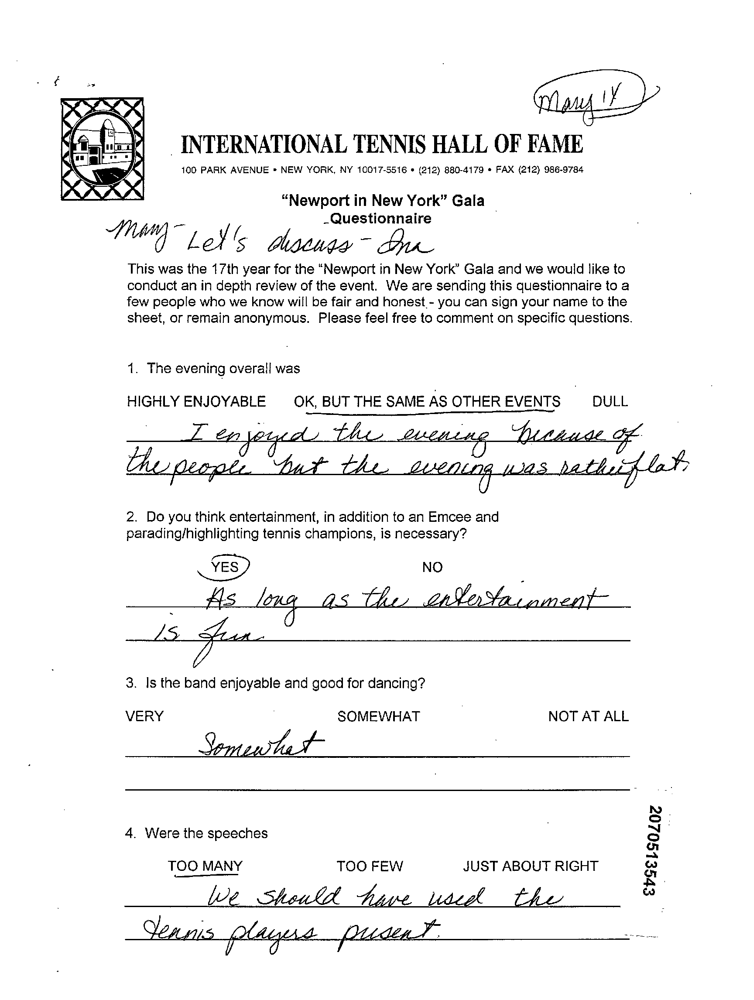 Mary 14
INTERNATIONAL TENNIS HALL OF FAME
100 PARK AVENUE • NEW YORK, NY 10017-5516 • (212) 880-4179 • FAX (212) 986-9784
“Newport in New York” Gala
Questionnaire
Mary- Let's discuss - Ina
This was the 17th year for the “Newport in New York” Gala and we would like to
conduct an in depth review of the event. We are sending this questionnaire to a
few people who we know will be fair and honest - you can sign your name to the
sheet, or remain anonymous. Please feel free to comment on specific questions.
1. The evening overall was
HIGHLY ENJOYABLE OK, BUT THE SAME AS OTHER EVENTS DULL
I enjoyed the evening because of
the people but the evening was rather flat.
2. Do you think entertainment, in addition to an Emcee and
parading/highlighting tennis champions, is necessary?
YES NO
As long as the entertainment
is fun
3. Is the band enjoyable and good for dancing?
VERY SOMEWHAT NOT AT ALL
Somewhat
4. Were the speeches
TOO MANY TOO FEW JUST ABOUT RIGHT
We should have used the
tennis players present.
2070513543